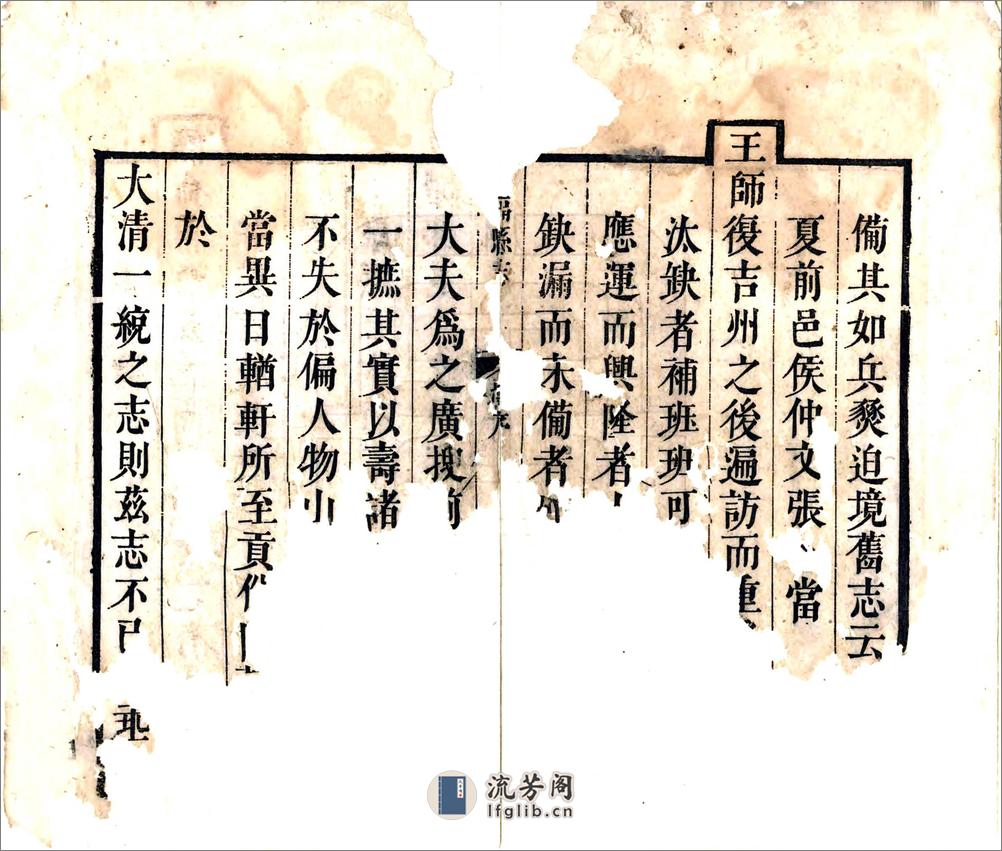 備其如兵燹迫境舊志云
夏前邑侯仲文張公當
王師復吉州之後遍訪而重
汰缺者補班班可
應運而興隆者
缺漏而未備者
縣志
大夫爲之廣搜前
一摭其實以壽諸
不失於偏人物
當異日輶軒所至貢
於
大清一統之志則茲志不已
流芳阁
lfglib.cn